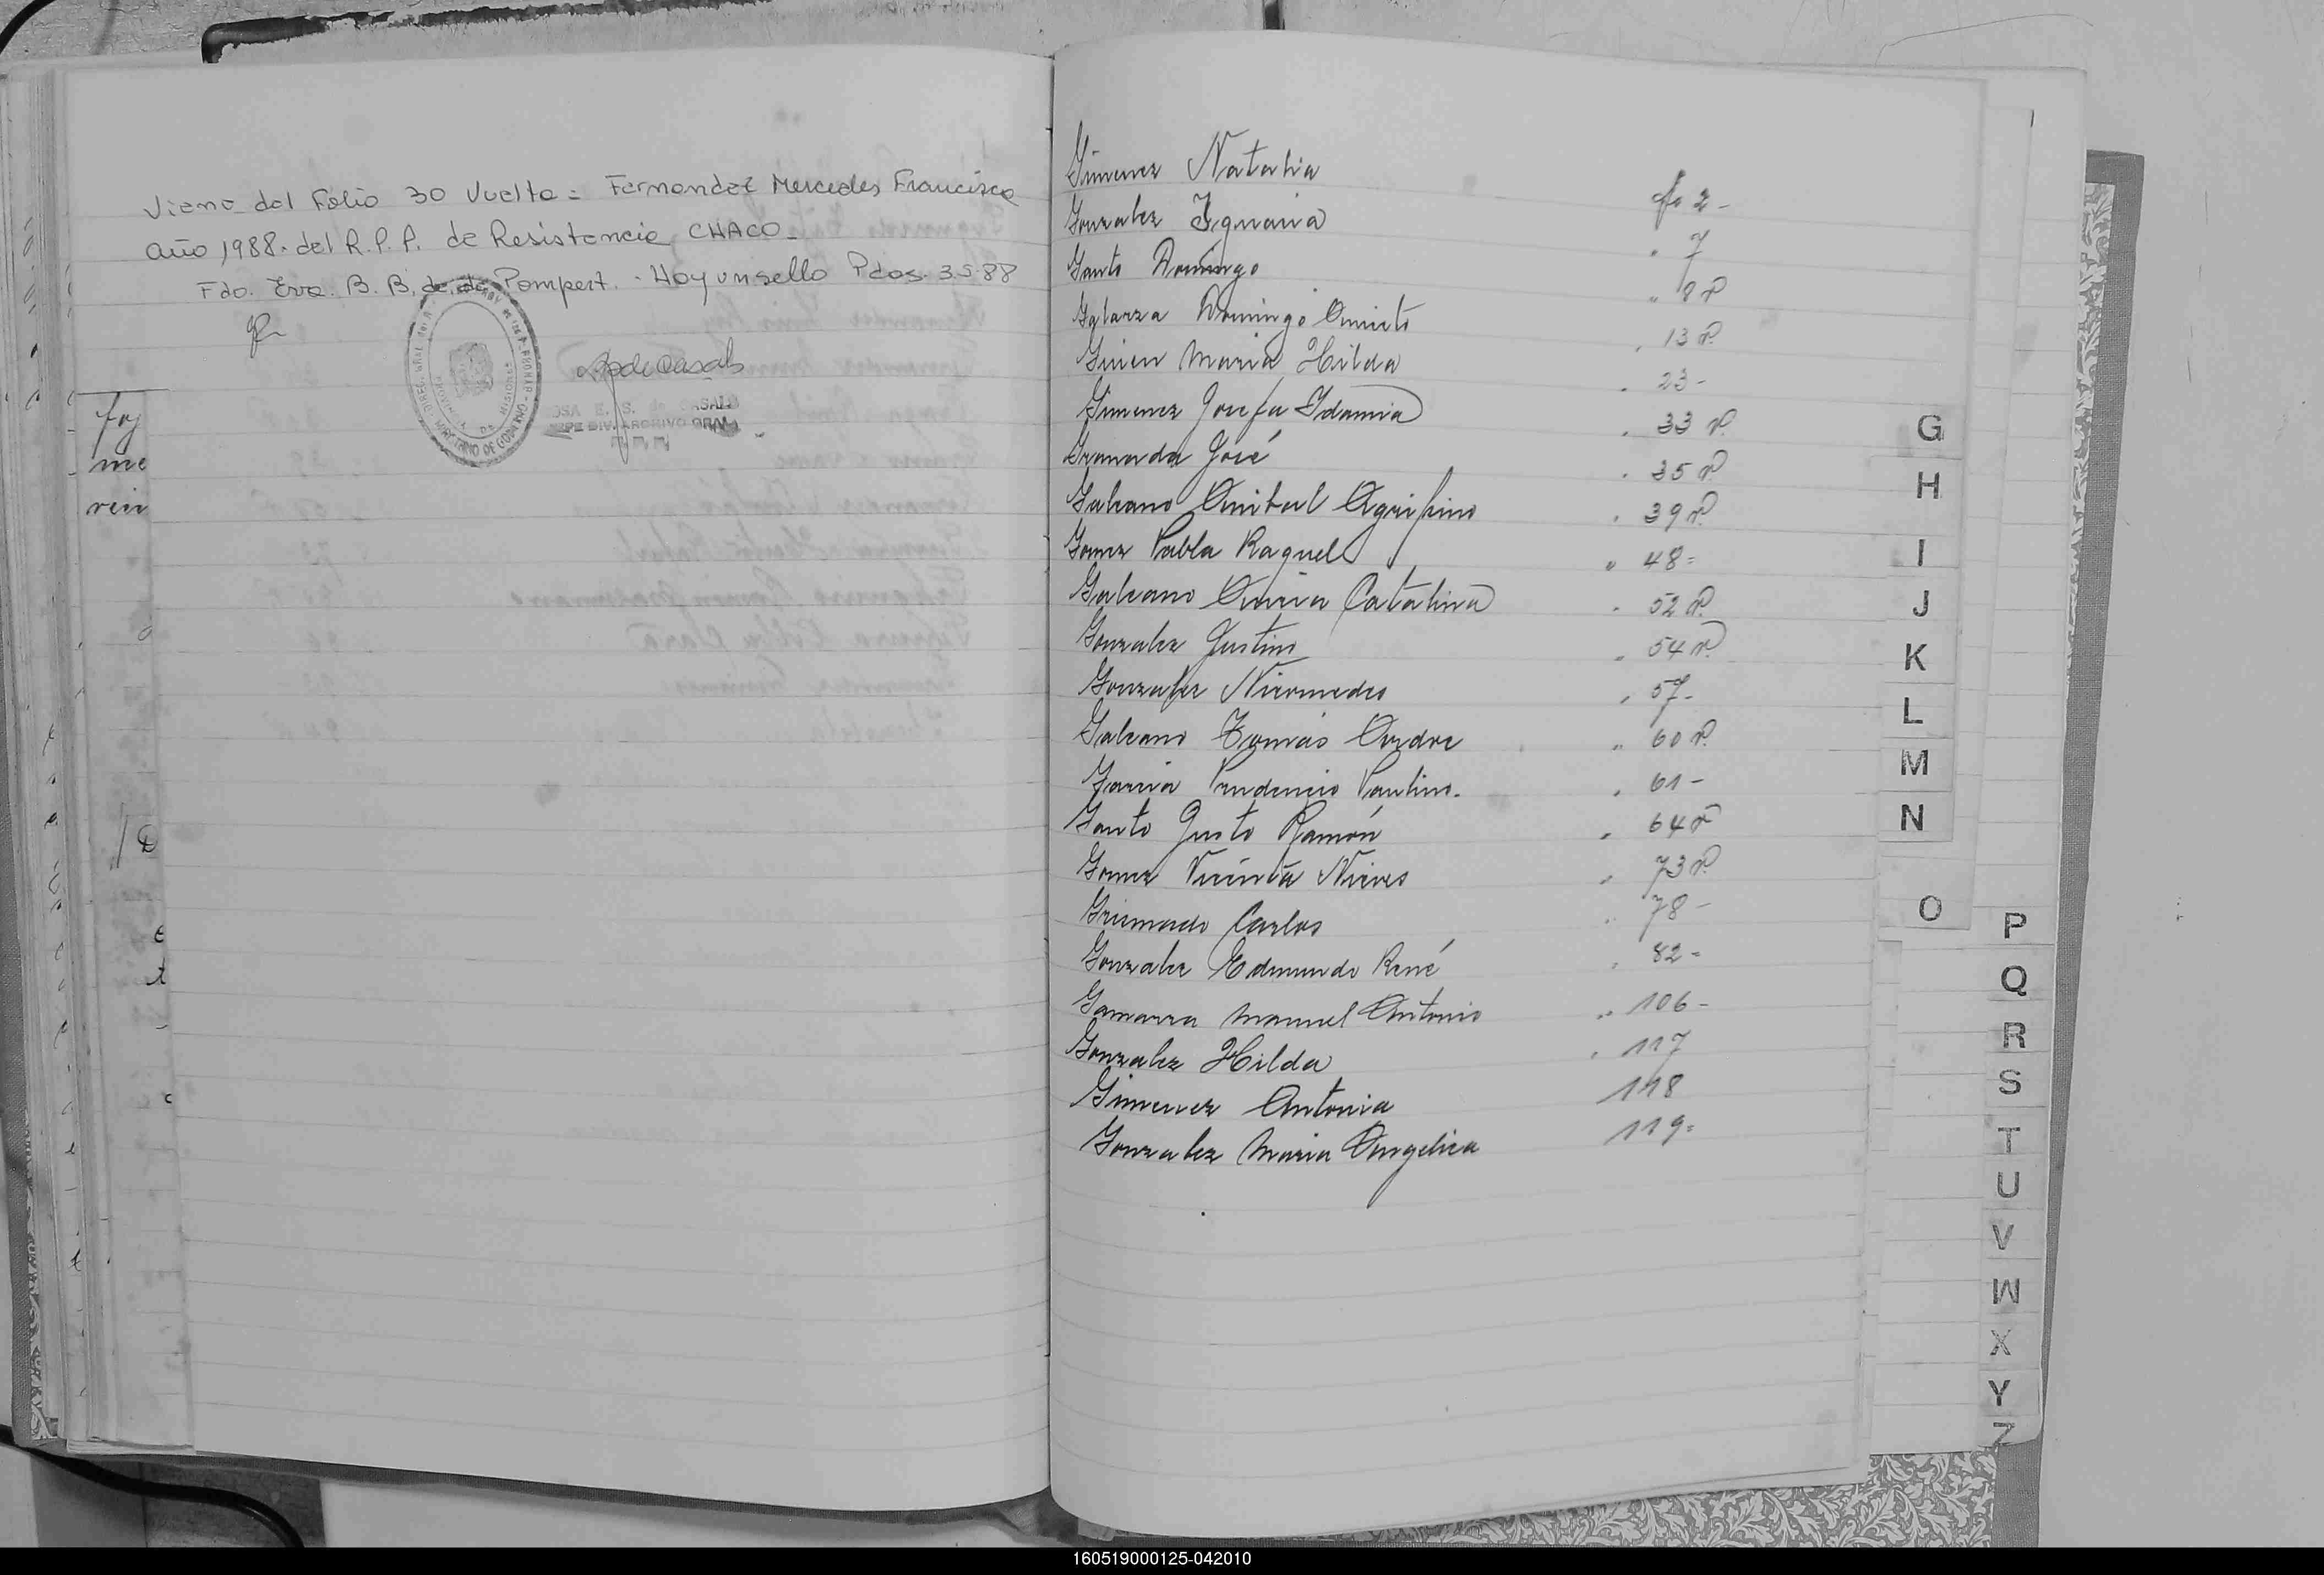 Viene del Folio 30 Vuelta = Fernandez Mercedes Francisca
año 1988. del R.P.P. de Resistencia CHACO-
Fdo. Eva. B. B. de de Pompert. - Hay un sello Pdas. 3.5.88
DIV. ARCHIVO GRAL
PROVINCIA DE MISIONES
MINISTERIO DE GOBIERNO
foj
me
Gimenez Natalia fo 2-
Gonzalez Ignacia " 7
Gauto Domingo " 8 v
Galarza Domingo Aniceto " 13 v
Maria Hilda " 23-
Gimenez Josefa Idamia " 33 v
Granada José " 35 v
Galeano Anibal Agripino " 39 v
Gomez Pabla Raquel " 48=
Galeano Catalina " 52 v
Gonzalez Justino " 54 v
Gonzalez Nicomedes " 57-
Galeano Tomás " 60 v
Garcia Prudencio Paulino. " 61-
Gauto Justo Ramón " 64 v
Gomez Vicenta Nieves " 73 v
Carlos " 78-
Gonzalez Edmundo René " 82-
Gamarra Manuel Antonio " 106-
Gonzalez Hilda " 117
Gimenez Antonia 118
Gonzalez Maria Angelica 119=
G
H
I
J
K
L
M
N
O
P
Q
R
S
T
U
V
W
X
Y
Z
160519000125-042010